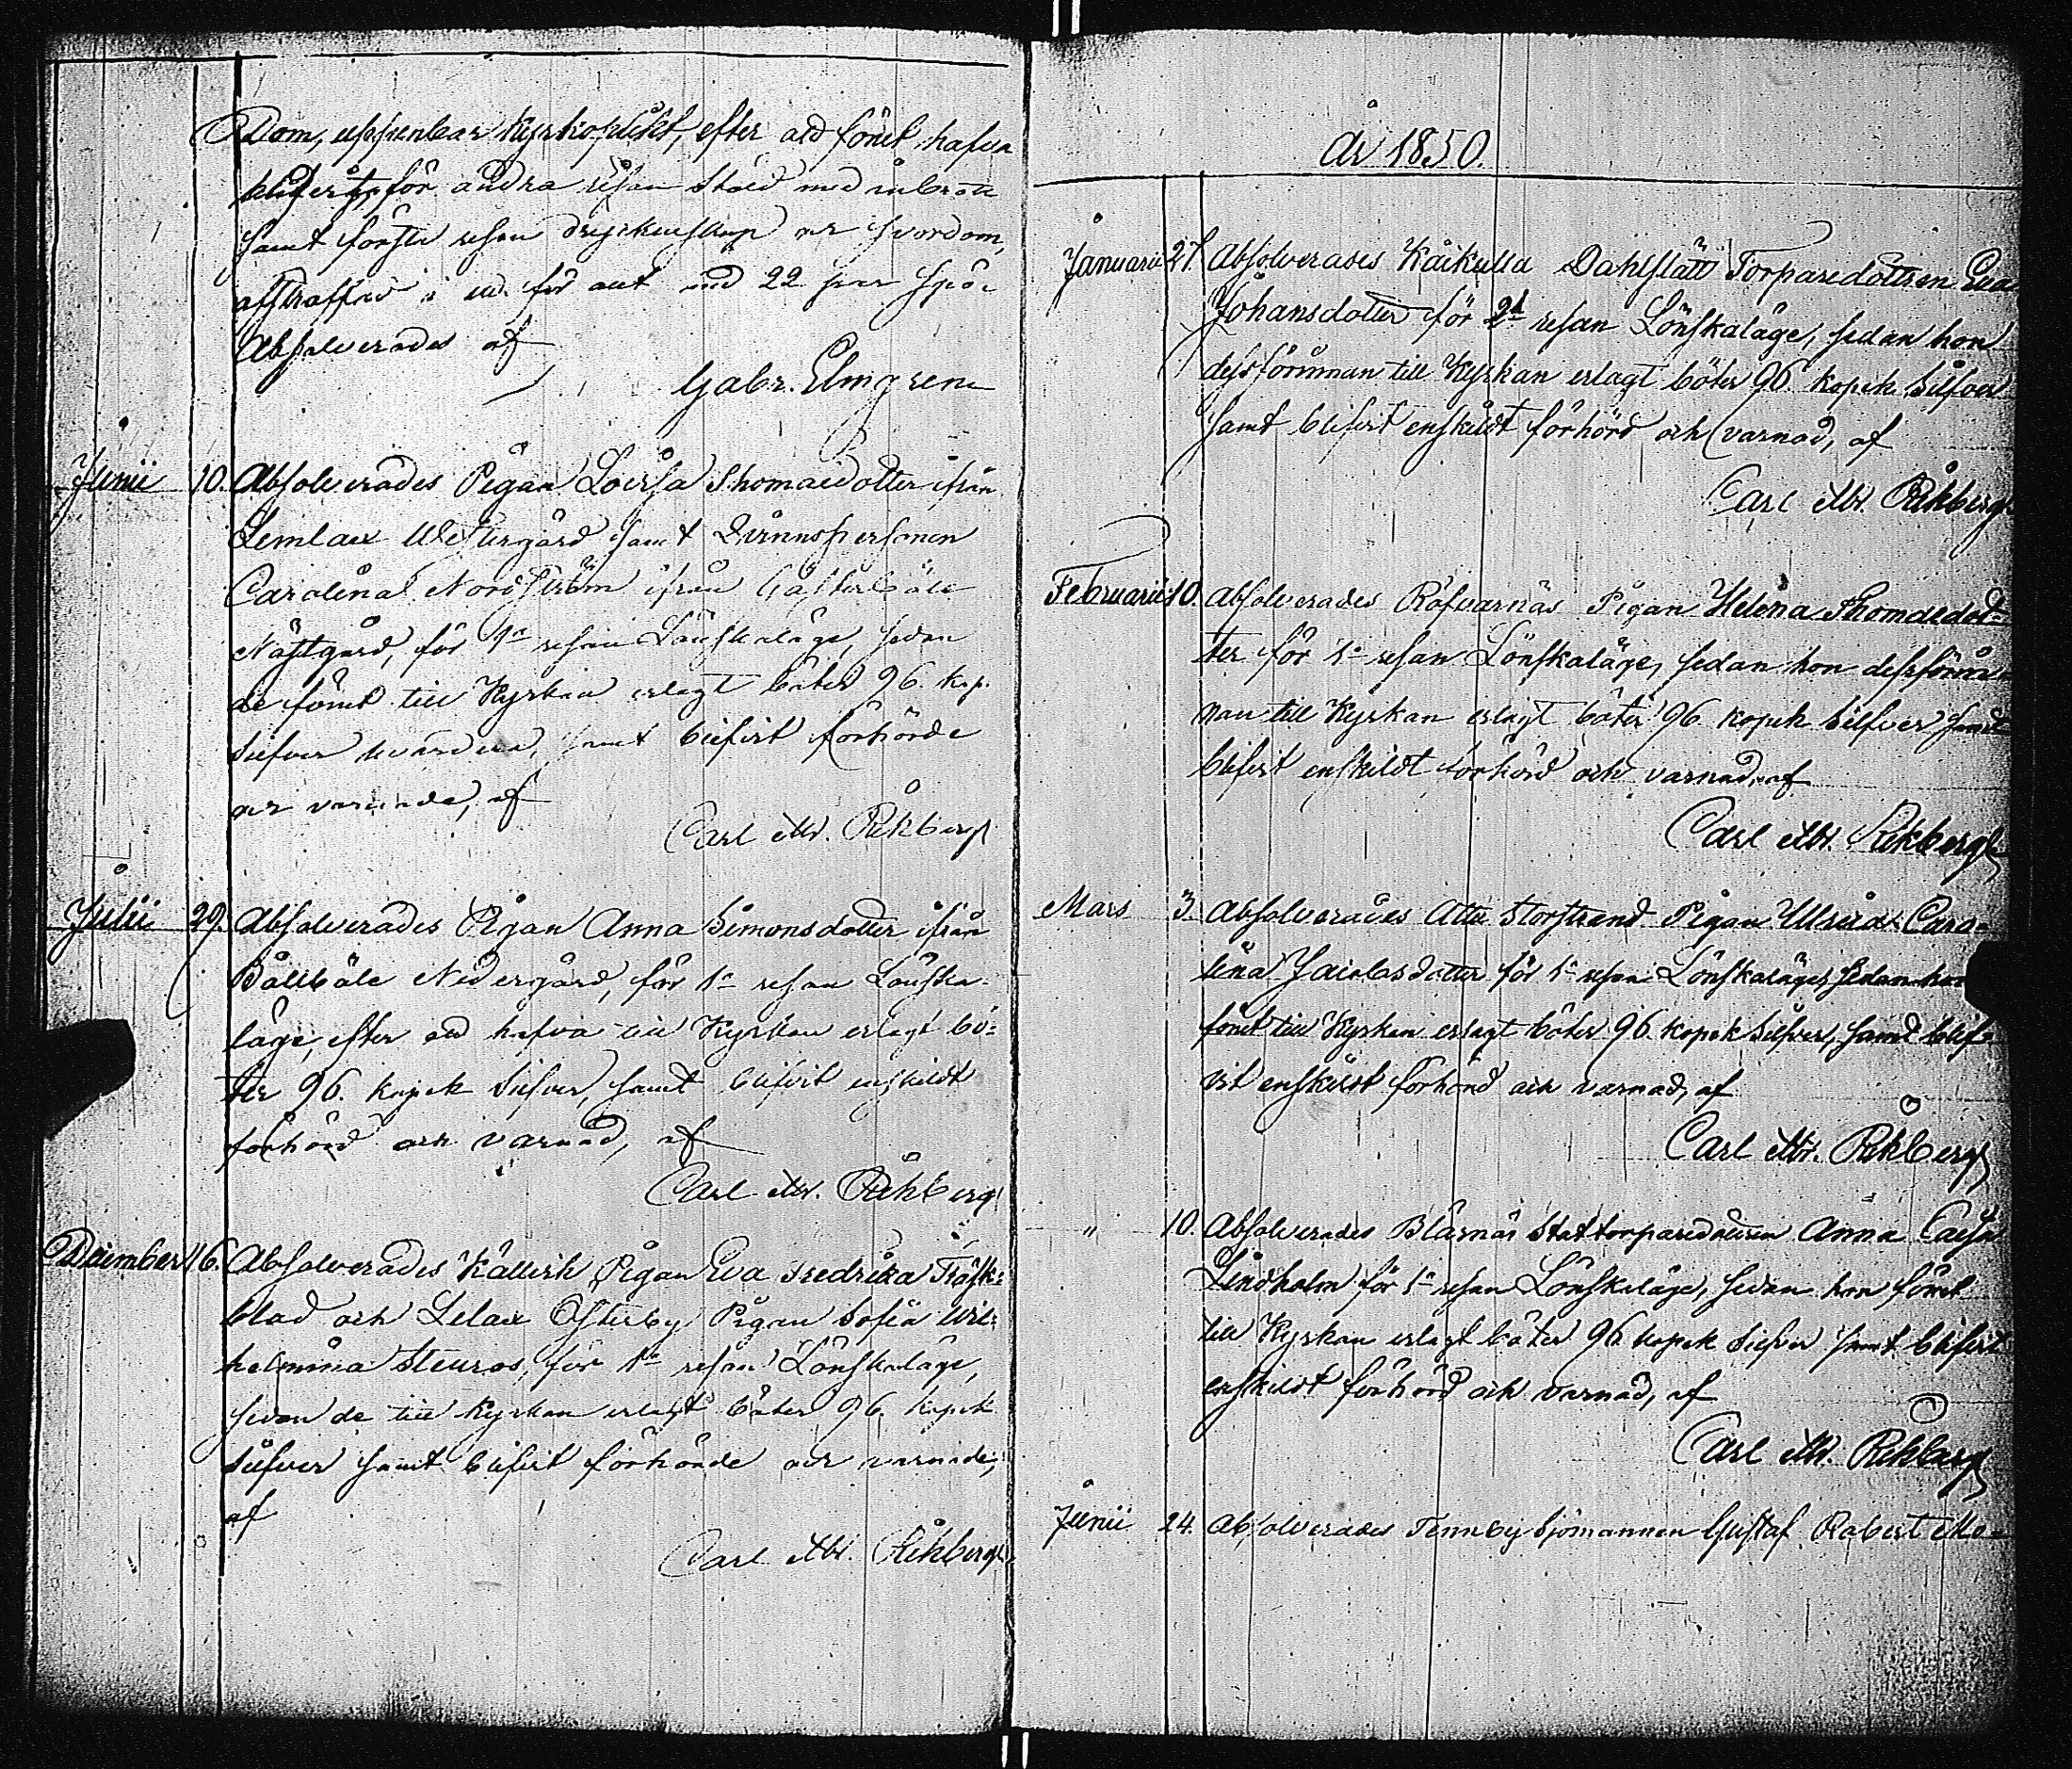 Dom, uppenbar Kyrkoplikt, efter att förut hafva
blifvit, för andra resan Stöld med inbrott
samt första resan dryckenskap och svordom,
afstraffad med 22 par spö,
Absolverades af
Gabr. Elmgren
Junii 10. Absolverades Pigan Lovisa Thomaedotter ifrån
Lemlax Westergård samt Qvinnspersonen
Carolina Nordström ifrån
Nästgård, för 1a resan Lönskaläge, sedan
de förut till Kyrkan erlagt böter 96. kop.
Silfver hvardera, samt blifvit förhörde
och varnade, af
Carl Mr. Råkberg
Julii 29. Absolverades Pigan Anna Simonsdotter ifrån
Bollböle Nedergård, för 1a resan Lönska-
läge, efter att hafva till Kyrkan erlagt bö-
ter 96. kopek Silfver, samt blifvit enskildt
förhörd och varnad, af
Carl Mr. Råkberg
December 16. Absolverades Källvik Pigan Eva Fredrika Träsk-
blad och Lelax Österby Pigan Sofia Wil-
helmina Stenros, för 1a resan Lönskaläge,
sedan de till Kyrkan erlagt böter 96. kopek
Silfver samt blifvit förhörde och varnade,
af
Carl Mr. Råkberg
År 1850.
Januarii 27. Absolverades Kåikulla Dahlslätt Torparedottren Eva
Johansdotter för 2a resan Lönskaläge, sedan hon
dessförinnan till Kyrkan erlagt böter 96. kopek Silfver
samt blifvit enskildt förhörd och varnad, af
Carl Mr. Råkberg
Februarii 10. Absolverades Räfvarnäs Pigan Helena Thomaedot-
ter för 1a resan Lönskaläge, sedan hon dessförin-
nan till Kyrkan erlagt böter 96. kopek Silfver samt
blifvit enskildt förhörd och varnad, af
Carl Mr. Råkberg
Mars 3. Absolverades Attu Storstrand Pigan Ulrica Caro-
lina Jacobsdotter för 1a resan Lönskaläge, sedan hon
förut till Kyrkan erlagt böter 96. kopek Silfver, samt blif-
vit enskildt förhörd och varnad, af
Carl Mr. Råkberg
" 10. Absolverades Blåsnäs Stattorparedottren Anna Caisa
Lindholm för 1a resan Lönskaläge, sedan hon förut
till Kyrkan erlagt böter 96 kopek Silfver samt blifvit
enskildt förhörd och varnad, af
Carl Mr. Råkberg
Junii 24. Absolverades Tennby Sjömannen Gustaf Robert Mo-